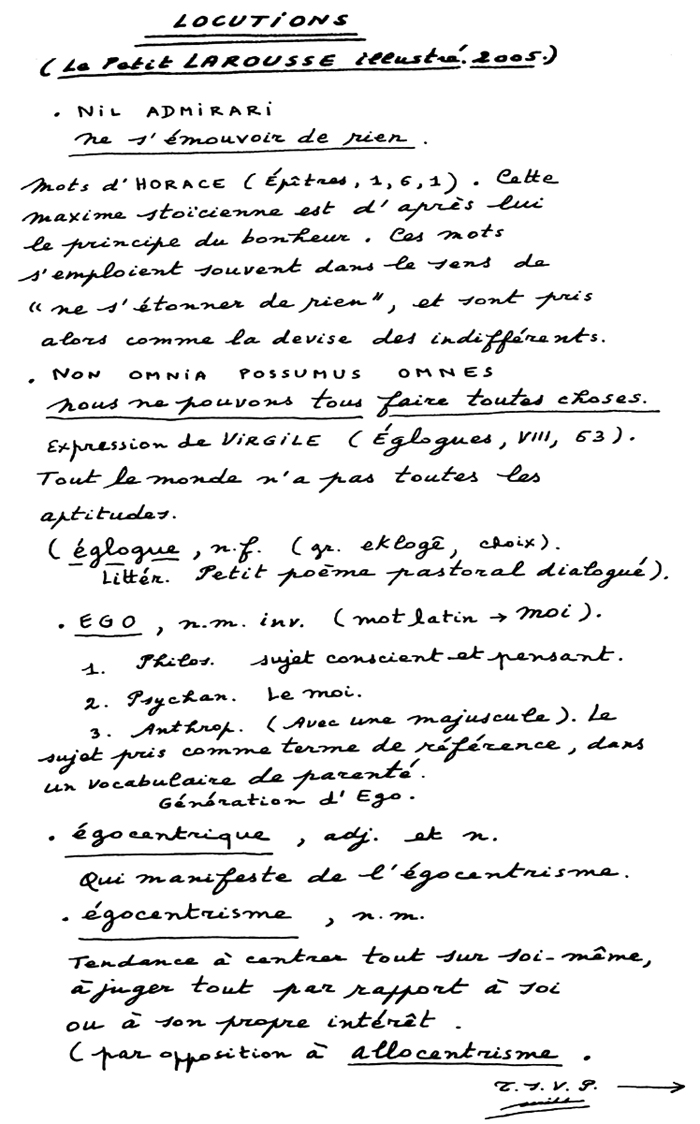 LOCUTIONS
(Le Petit LAROUSSE illustré. 2005.)
• NIL ADMIRARI
ne s'émouvoir de rien.
Mots d'HORACE (Épîtres, 1, 6, 1). Cette
maxime stoïcienne est d'après lui
le principe du bonheur. Ces mots
s'emploient souvent dans le sens de
"ne s'étonner de rien", et sont pris
alors comme la devise des indifférents.
• NON OMNIA POSSUMUS OMNES
nous ne pouvons tous faire toutes choses.
Expression de VIRGILE (Églogues, VIII, 63).
Tout le monde n'a pas toutes les
aptitudes.
(églogue, n.f. (gr. eklogê, choix).
Littér. Petit poème pastoral dialogué).
• EGO, n.m. inv. (mot latin → moi).
1. Philos. sujet conscient et pensant.
2. Psychan. Le moi.
3. Anthrop. (Avec une majuscule). Le
sujet pris comme terme de référence, dans
un vocabulaire de parenté.
Génération d'Ego.
• égocentrique, adj. et n.
Qui manifeste de l'égocentrisme.
• égocentrisme, n.m.
Tendance à centrer tout sur soi-même,
à juger tout par rapport à soi
ou à son propre intérêt.
(par opposition à allocentrisme.
T.S.V.P. →